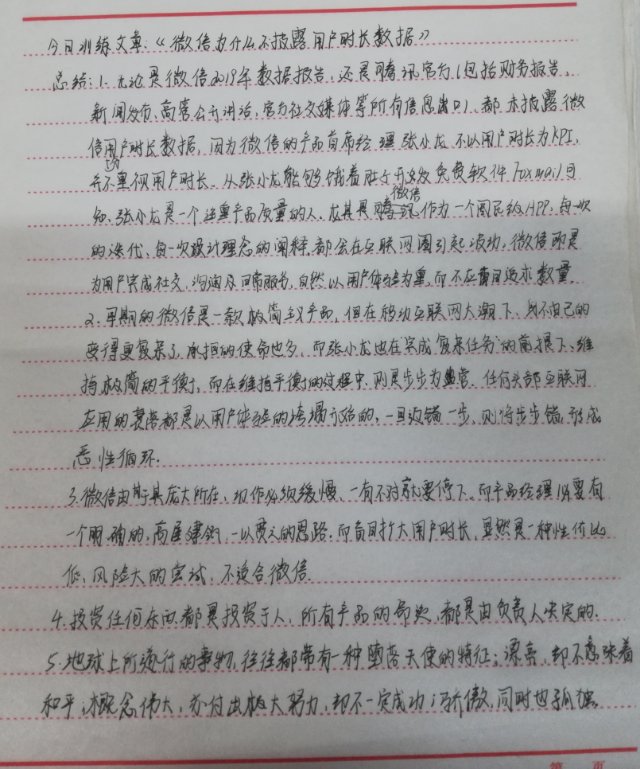 今日训练文章：《微信为什么不披露用户时长数据》
总结：1.无论是微信2019年数据报告，还是腾讯官方（包括财务报告，
新闻发布，高管公开讲话，官方社交媒体等所有信息出口）都未披露微
信用户时长数据，因为微信的产品首席经理张小龙不以用户时长为KPI，
并不重视用户时长。从张小龙能够饿着肚子开发免费软件Foxmail可
微信
知，张小龙是一个注重产品质量的人，尤其是作为一个国民级APP，每一次
的迭代，每一次设计理念的阐释，都会在互联网圈引起波动。微信既是
为用户完成社交，沟通及日常服务，自然以用户体验为重，而不应盲目追求数量。
2.早期的微信是一款极简主义产品，但在移动互联网大潮下，身不由己的
变得更复杂了，承担的使命也多，而张小龙也在完成复杂任务的前提下，维
持极简的平衡，而在维持平衡的过程中，则是步步为营。任何头部互联网
应用的衰落都是以用户体验的垮塌开始的，一旦改错一步，则将步步错，形成
恶性循环。
3.微信由于其庞大所在，动作必须缓慢、一有不对就要停下。而产品经理必要有
一个明确的，高屋建瓴，一以贯之的思路，而盲目扩大用户时长，显然是一种性价比
低，风险大的尝试，不适合微信。
4.投资任何东西都是投资于人，所有产品的命运，都是由负责人决定的。
5.地球上所流行的事物，往往都带有一种堕落天使的特征；漂亮，却不意味着
和平；概念伟大，亦付出极大努力，却不一定成功；骄傲，同时也孤独。
第 页